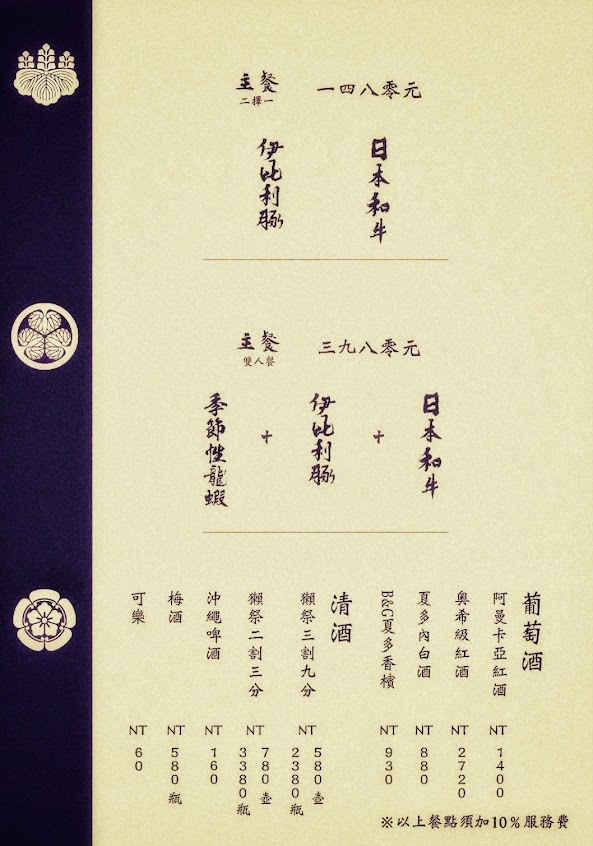 主餐 一四八零元
二擇一
日本和牛
伊比利豚
主餐 三九八零元
雙人餐
日本和牛
+
伊比利豚
+
季節性龍蝦
葡萄酒
阿曼卡亞紅酒 NT 1400
奧希級紅酒 NT 2720
夏多內白酒 NT 880
B&G夏多香檳 NT 930
清酒
獺祭三割九分 NT 580壺
2380瓶
獺祭二割三分 NT 780壺
3380瓶
沖繩啤酒 NT 160
梅酒 NT 580瓶
可樂 NT 60
※以上餐點須加10%服務費